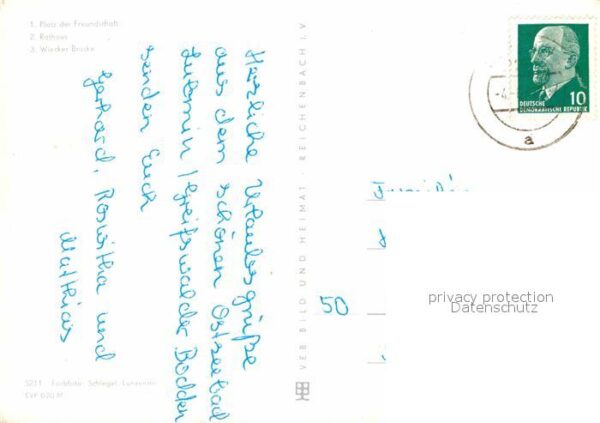 1. Platz der Freundschaft
2. Rathaus
3. Wiecker Brücke
Herzliche Urlaubsgrüße
aus dem schönen Ostseebad
Lubmin / Greifswalder Bodden
senden Euch
Gerhard, Roswitha und
Matthias
VEB BILD UND HEIMAT · REICHENBACH I. V.
DEUTSCHE
DEMOKRATISCHE REPUBLIK
10
a
50
privacy protection
Datenschutz
Farbfoto: Schlegel